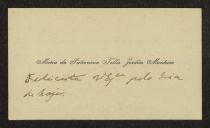 Maria do Patrocinio Tellis Jordão Monteiro
Felicita V. Ex.ª pelo dia
de hoje.